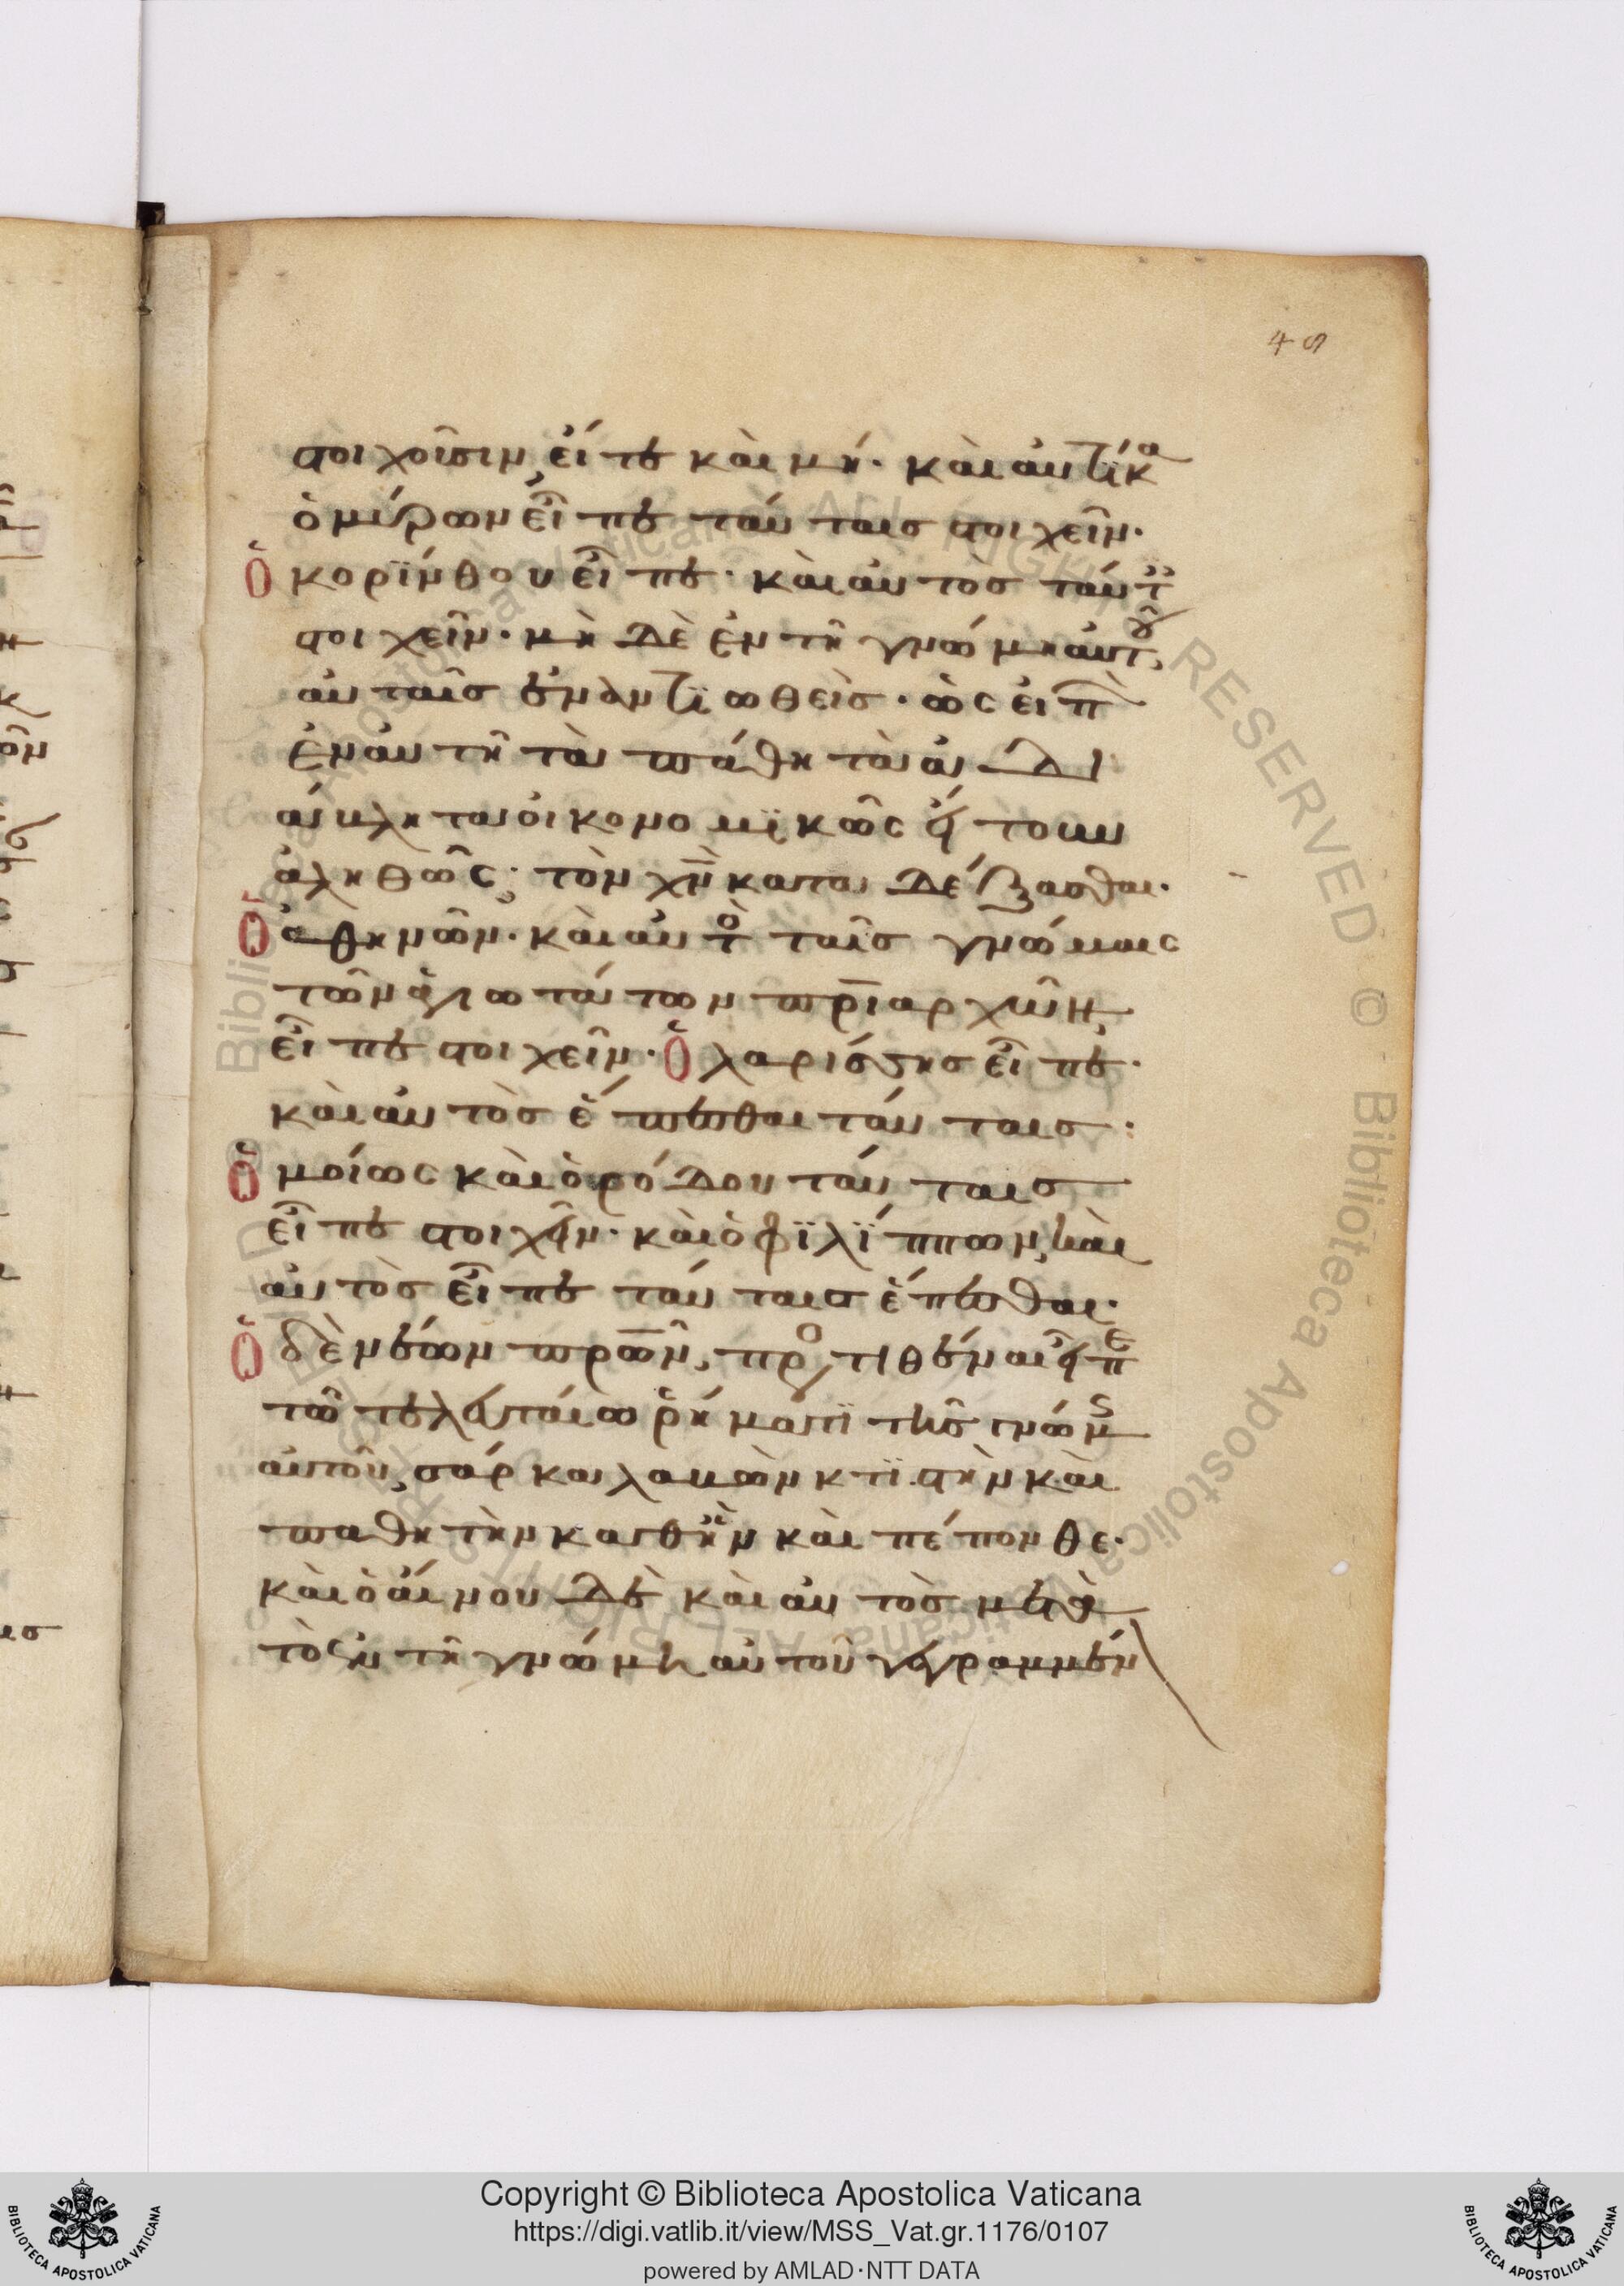 48
στοιχοῦσιν, εἴτε καὶ μή. καὶ αὐτίκα
ὁ μύρων εἶπε ταύταις στοιχεῖν.
Ὁ κορίνθου εἶπε· καὶ αὐτὸς ταύτ
στοιχεῖν. μὴ δὲ ἐν τῆ γνώμη αὐτοῦ,
αὐταῖς ἐναντϊωθεὶς. ὡς εἰπ
ἐν αὐτῆ τὰ πάθη τὰ ἀδι
άβλητα οἰκονομϊκῶς ἤτοι
ἀληθῶς· τὸν χν καταδέξασθαι.
Ὁ ἀθηνῶν. καὶ αὐτὸ ταῖς γνώμαις
τῶν ἁγιωτάτων πριαρχῶν,
εἶπε στοιχεῖν. Ὁ λαρίσσης εἶπε·
καὶ αὐτὸς ἕπεσθαι ταύταις·
Ὁμοίως καὶ ὁ ρόδου ταύταις
εἶπε στοιχεῖν. καὶ ὁ φϊλϊππων, καὶ
αὐτὸς εἶπε ταύταις ἕπεσθαι.
Ὁ δὲ νέων πρῶν, προστιθέναι εἶπε
τῶ τελευταίω ῥήματϊ τῆς γνώμ
αὐτοῦ, σάρκα λαβὼν κτϊστὴν καὶ
παθητὴν καθ ἣν καὶ πέπονθε.
καὶ ὁ αἴνου δὲ καὶ αὐτὸς μετὰ
τὸ ἐν τῆ γνώμη αὐτοῦ γεγραμμέν
Copyright © Biblioteca Apostolica Vaticana
https://digi.vatlib.it/view/MSS_Vat.gr.1176/0107
powered by AMLAD·NTT DATA
BIBLIOTECA APOSTOLICA VATICANA
BIBLIOTECA APOSTOLICA VATICANA